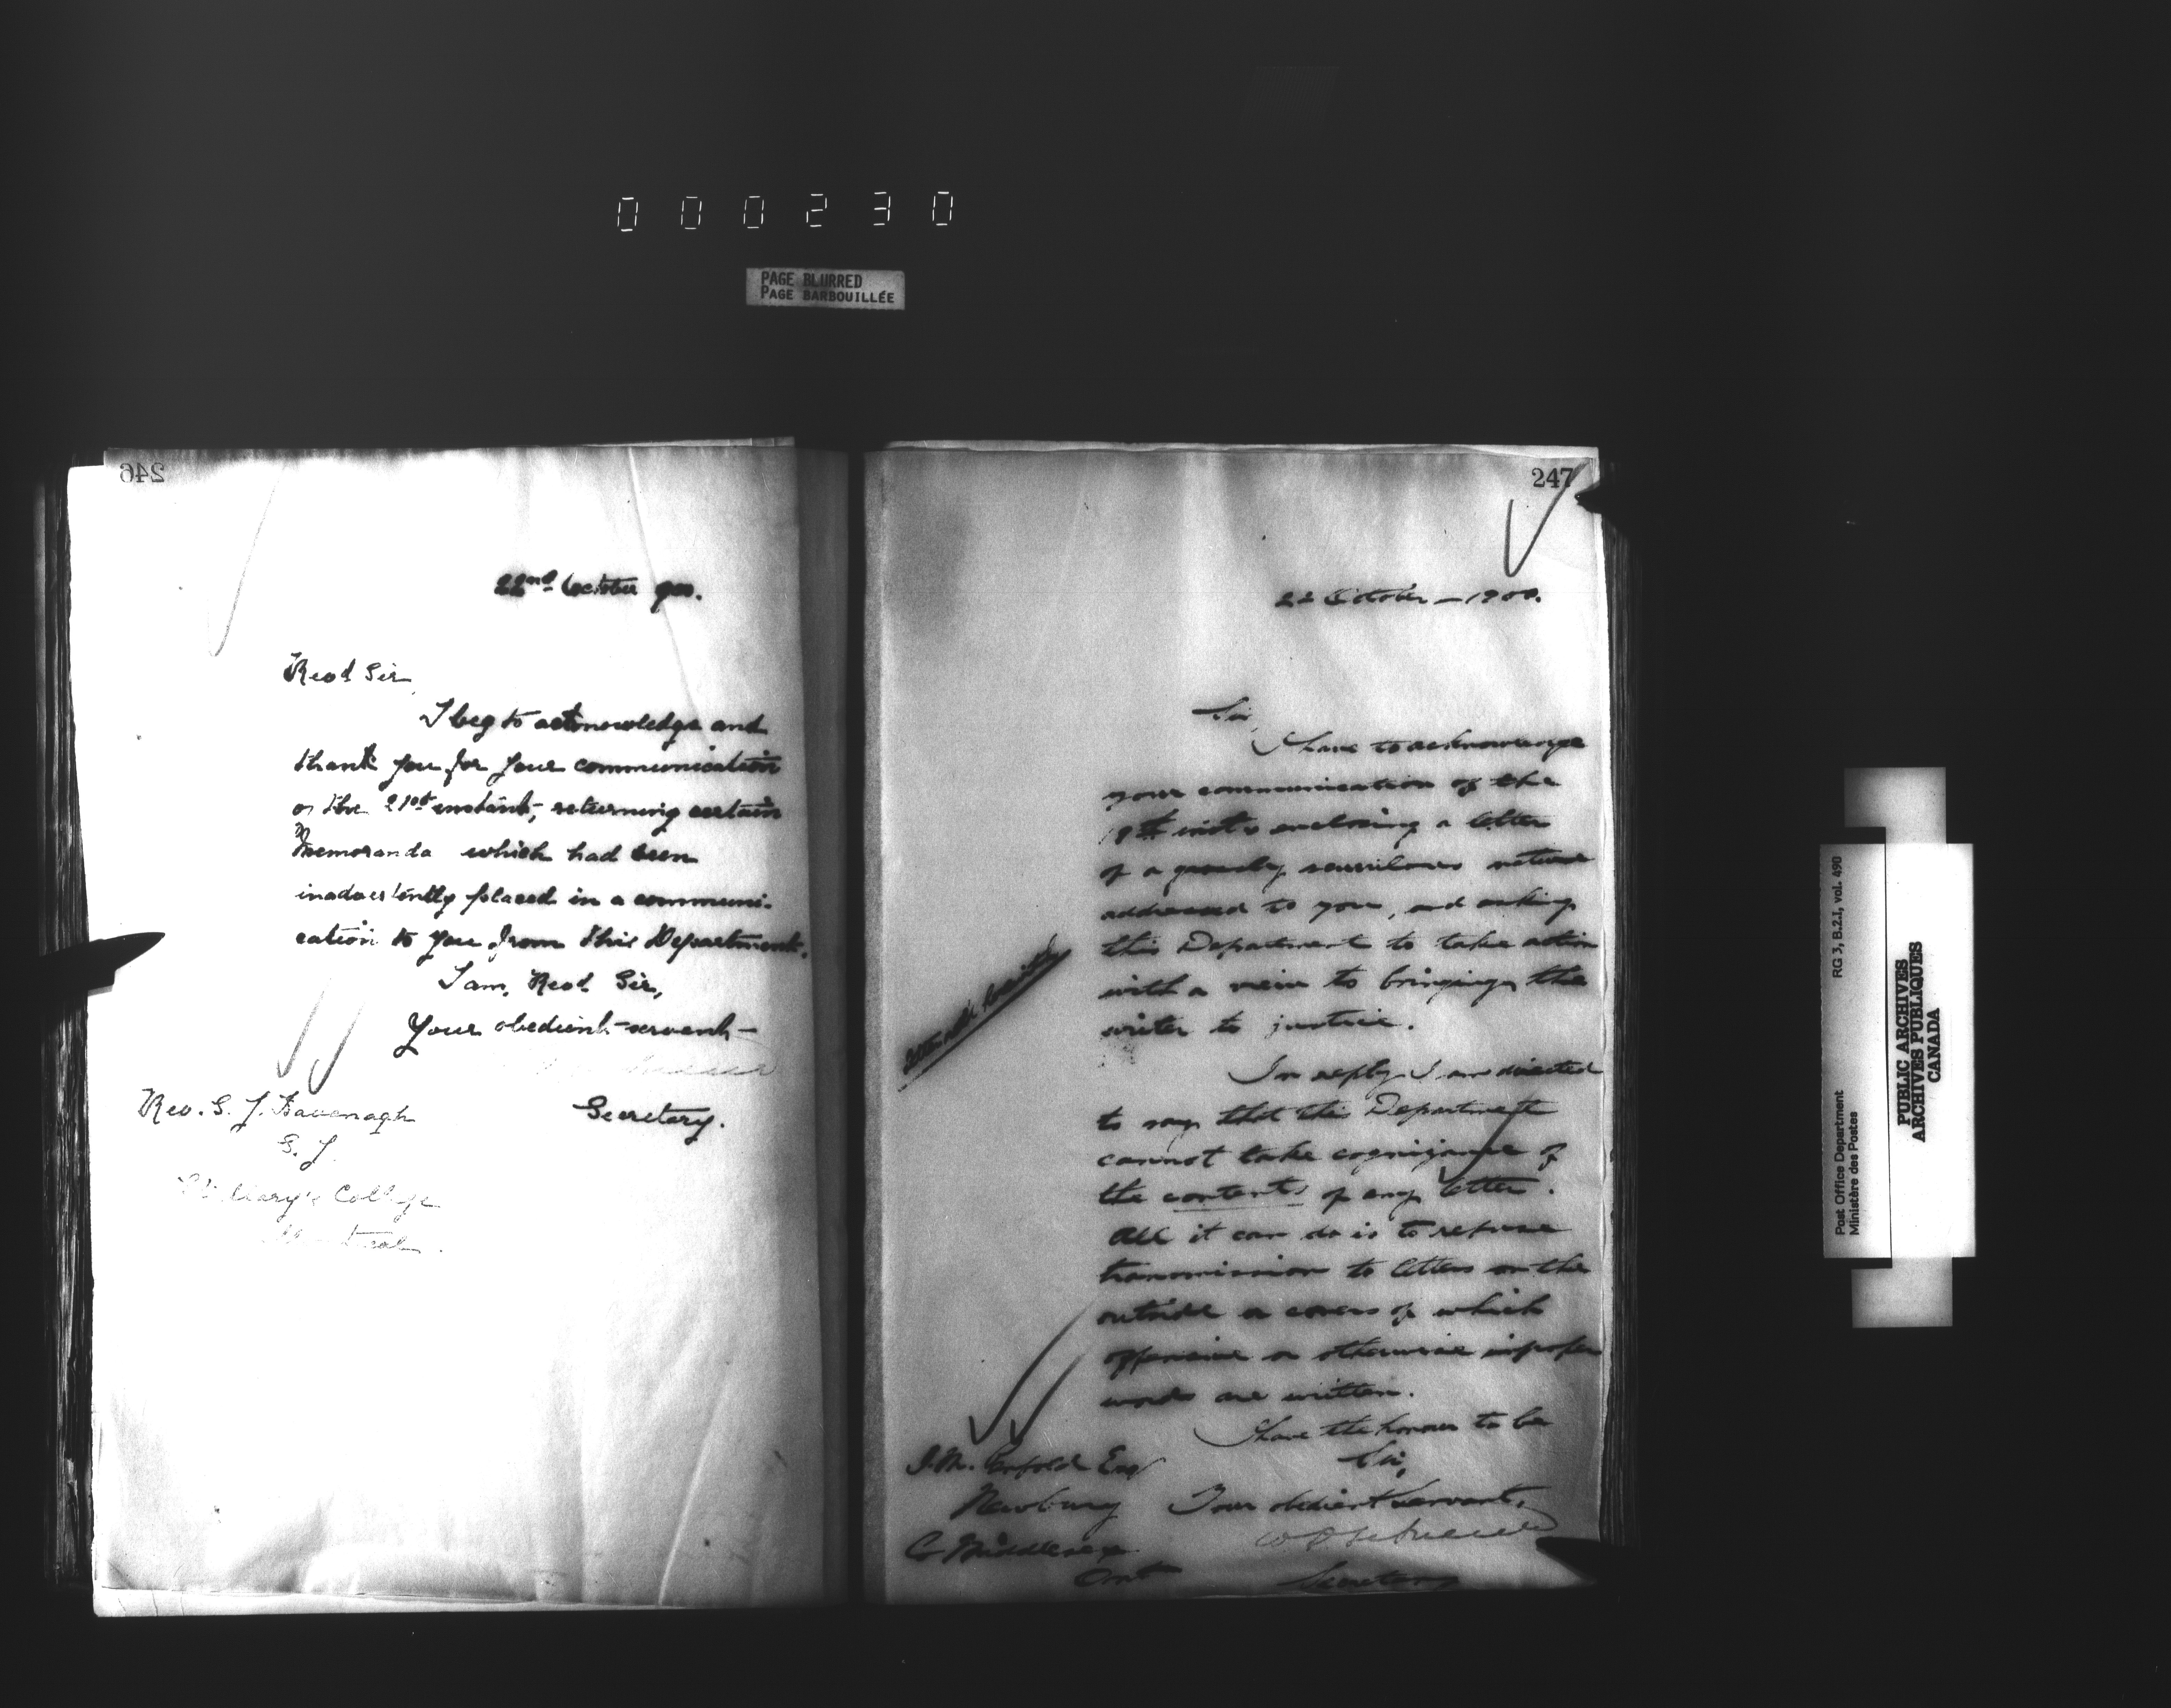 000230
PAGE BLURRED
PAGE BARBOUILLÉE
246
22nd October 900.
Revd Sir,
I beg to acknowledge and
thank you for your communication
of the 21st instant, returning certain
Memoranda which had been
inadvertently placed in a communi-
cation to you from this Department.
I am, Revd Sir,
Your obedient servant
Secretary.
Rev. S. J. Kavenagh
S. J.
St Mary's College
Montreal.
247
22 October – 1900.
Sir,
I have to acknowledge
your communication of the
19th inst. enclosing a letter
of a grossly scurrilous nature
addressed to you, and asking
this Department to take action
with a view to bringing the
writer to justice.
In reply I am directed
to say that this Department
cannot take cognizance of
the contents of any letter.
All it can do is to refuse
transmission to letters on the
outside or covers of which
offensive or otherwise improper
words are written.
I have the honour to be
Sir,
Your obedient servant,
Secretary
J.M. Esq
Newbury
Co Middlesex
Ont
Post Office Department
Ministère des Postes
RG 3, B.2.I, vol. 490
PUBLIC ARCHIVES
ARCHIVES PUBLIQUES
CANADA